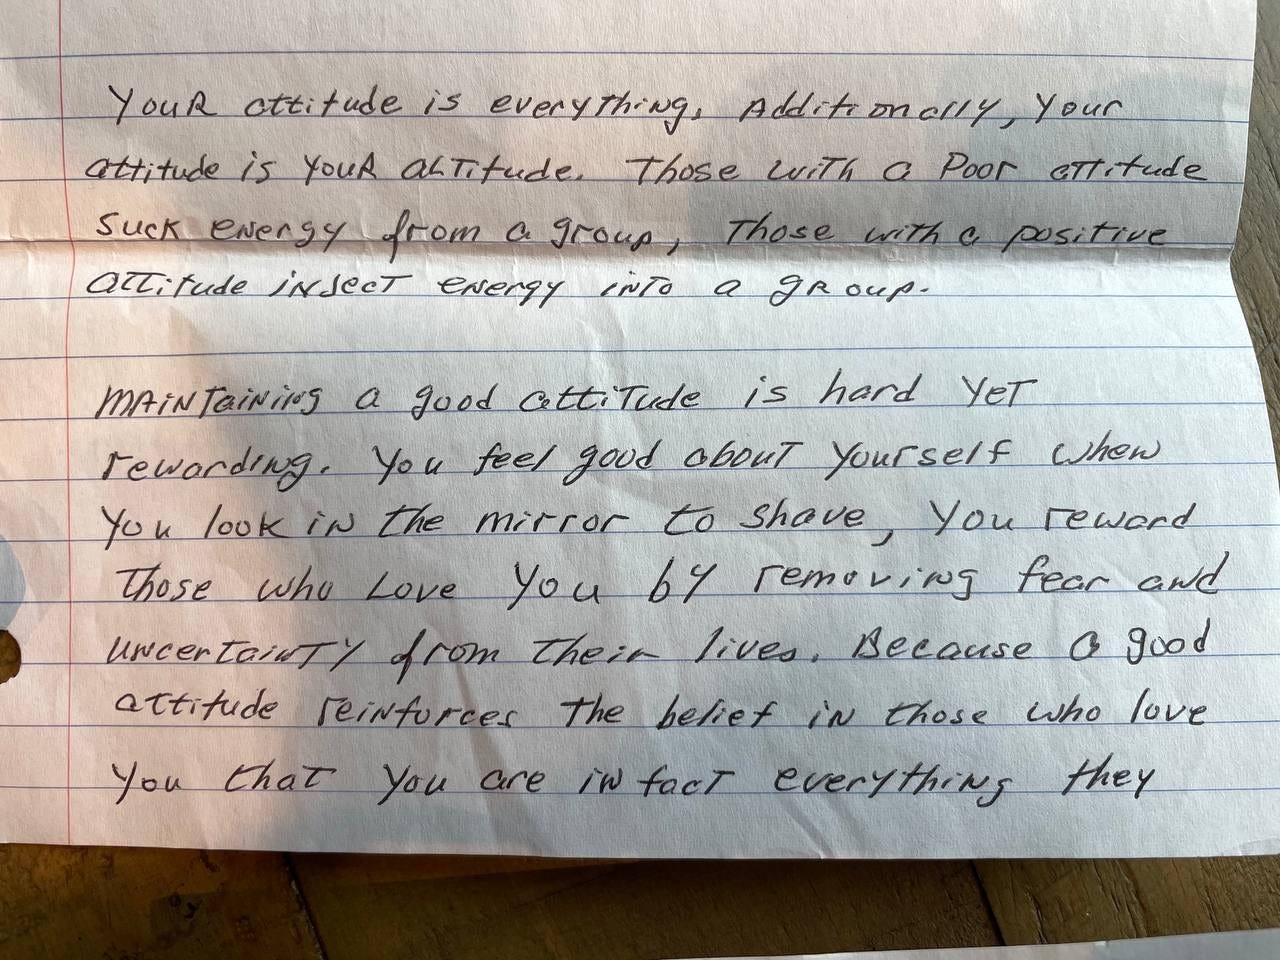 Your attitude is everything. Additionally, your
attitude is your altitude. Those with a poor attitude
suck energy from a group, Those with a positive
attitude inject energy into a group.
Maintaining a good attitude is hard yet
rewarding. You feel good about yourself when
you look in the mirror to shave, you reward
those who love you by removing fear and
uncertainty from their lives. Because a good
attitude reinforces the belief in those who love
you that you are in fact everything they